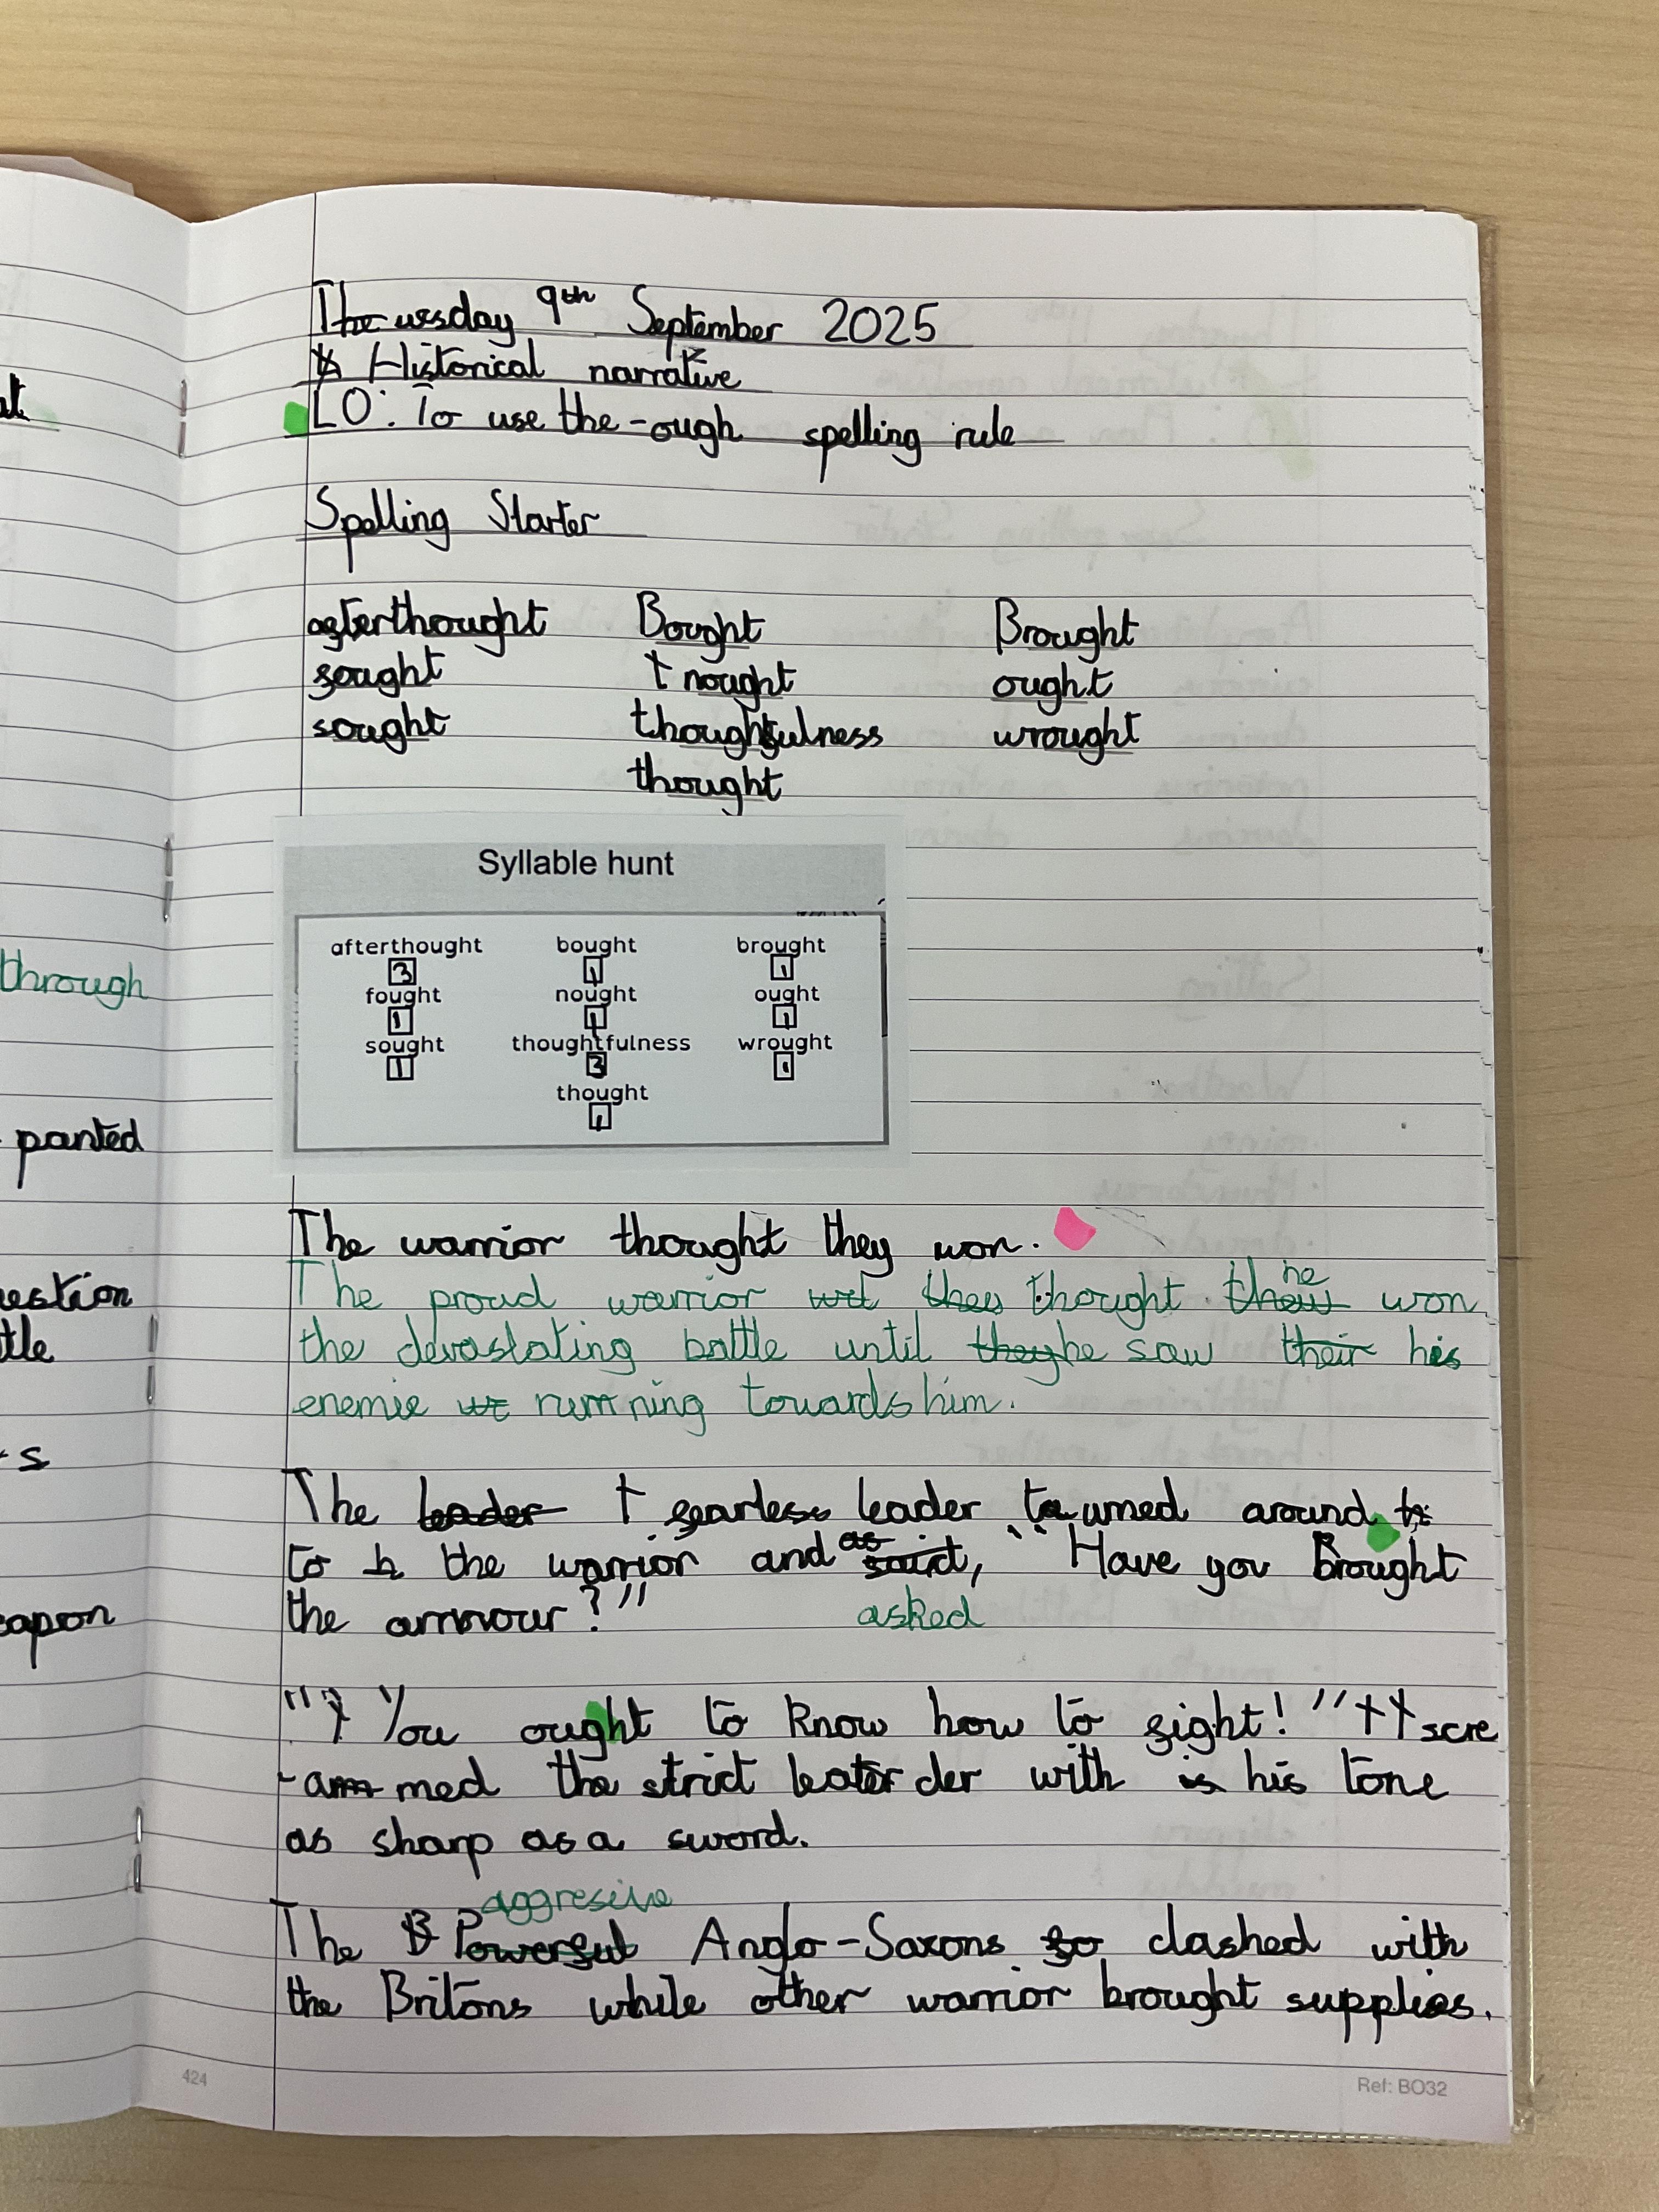 Thuesday 9th September 2025
Historical narrative
LO: To use the -ough spelling rule
Spelling Starter
afterthought Bought Brought
sought nought ought
sought thoughtfulness wrought
thought
Syllable hunt
afterthought bought brought
3 1 1
fought nought ought
1 1 1
sought thoughtfulness wrought
1 3 1
thought
1
through
panted
estion
tle
s
eapon
The warrior thought they won.
The proud warrior thought he won
the devastating battle until he saw his
enemie running towards him.
The fearless leader turned around
to the warrior and, "Have you Brought
the armour?" asked
"You ought to know how to fight!" scre
-amed the strict leader with his tone
as sharp as a sword.
aggresive
The Powerful Anglo-Saxons clashed with
the Britons while other warrior brought supplies.
424
Ref: BO32